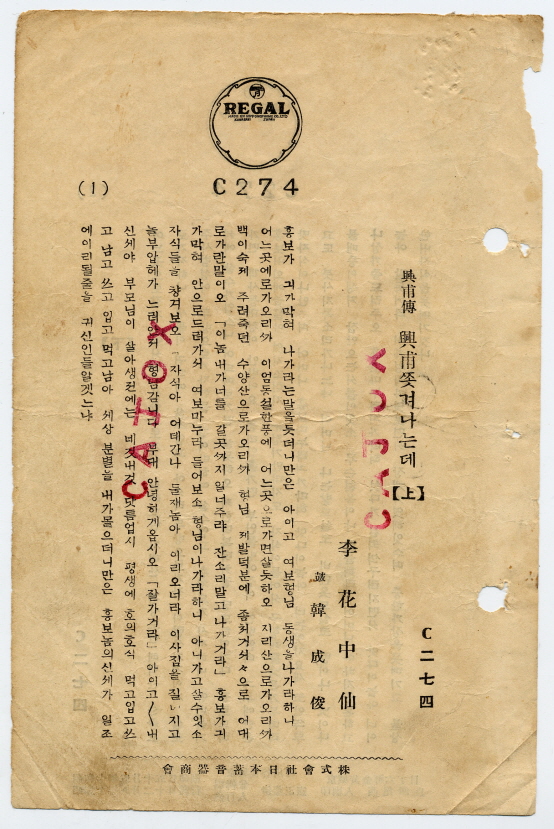 REGAL
MADE BY NIPPONOPHONE CO., LTD.
KAWASAKI JAPAN
(1)
C274
興甫傳 興甫쫓겨나는데【上】
C二七四
李花中仙
鼓 韓成俊
흥보가 긔가막혀 나가라는말을듯더니만은 아이고 여보형님 동생을나가라하니
어느곳에로가오리까 이엄동설한풍에 어느곳으로가면살듯하오 지리산으로가오리까
백이숙제 주려죽던 수양산으로가오리까 형님 제발덕분에 좀처거々으로 어대
로가란말이오 「이놈내가너를 갈곳까지일너주랴 잔소리말고나가거라」 흥보가긔
가막혀 안으로드러가며 여보마누라 들어보소 형님이나가라하니 아니가고살수잇소
자식들을 챵겨보오 자식아 어데간냐 둘재놈아 이리오너라 이사짐을 질머지고
놀부압헤가 느러안저 형님갑니다 부대 안녕히게옵시오 「잘가거라」 아이고〳〵내
신세야 부모님이 살아생전에는 네것내것닷틈업시 평생에 호의호식 먹고입고쓰
고 남고 쓰고 입고먹고남아 세상 분별을 내가몰으더니만은 흥보놈의신세가 일조
에이리될줄을 귀신인들알겟느냐
株式會社日本蓄音器商會